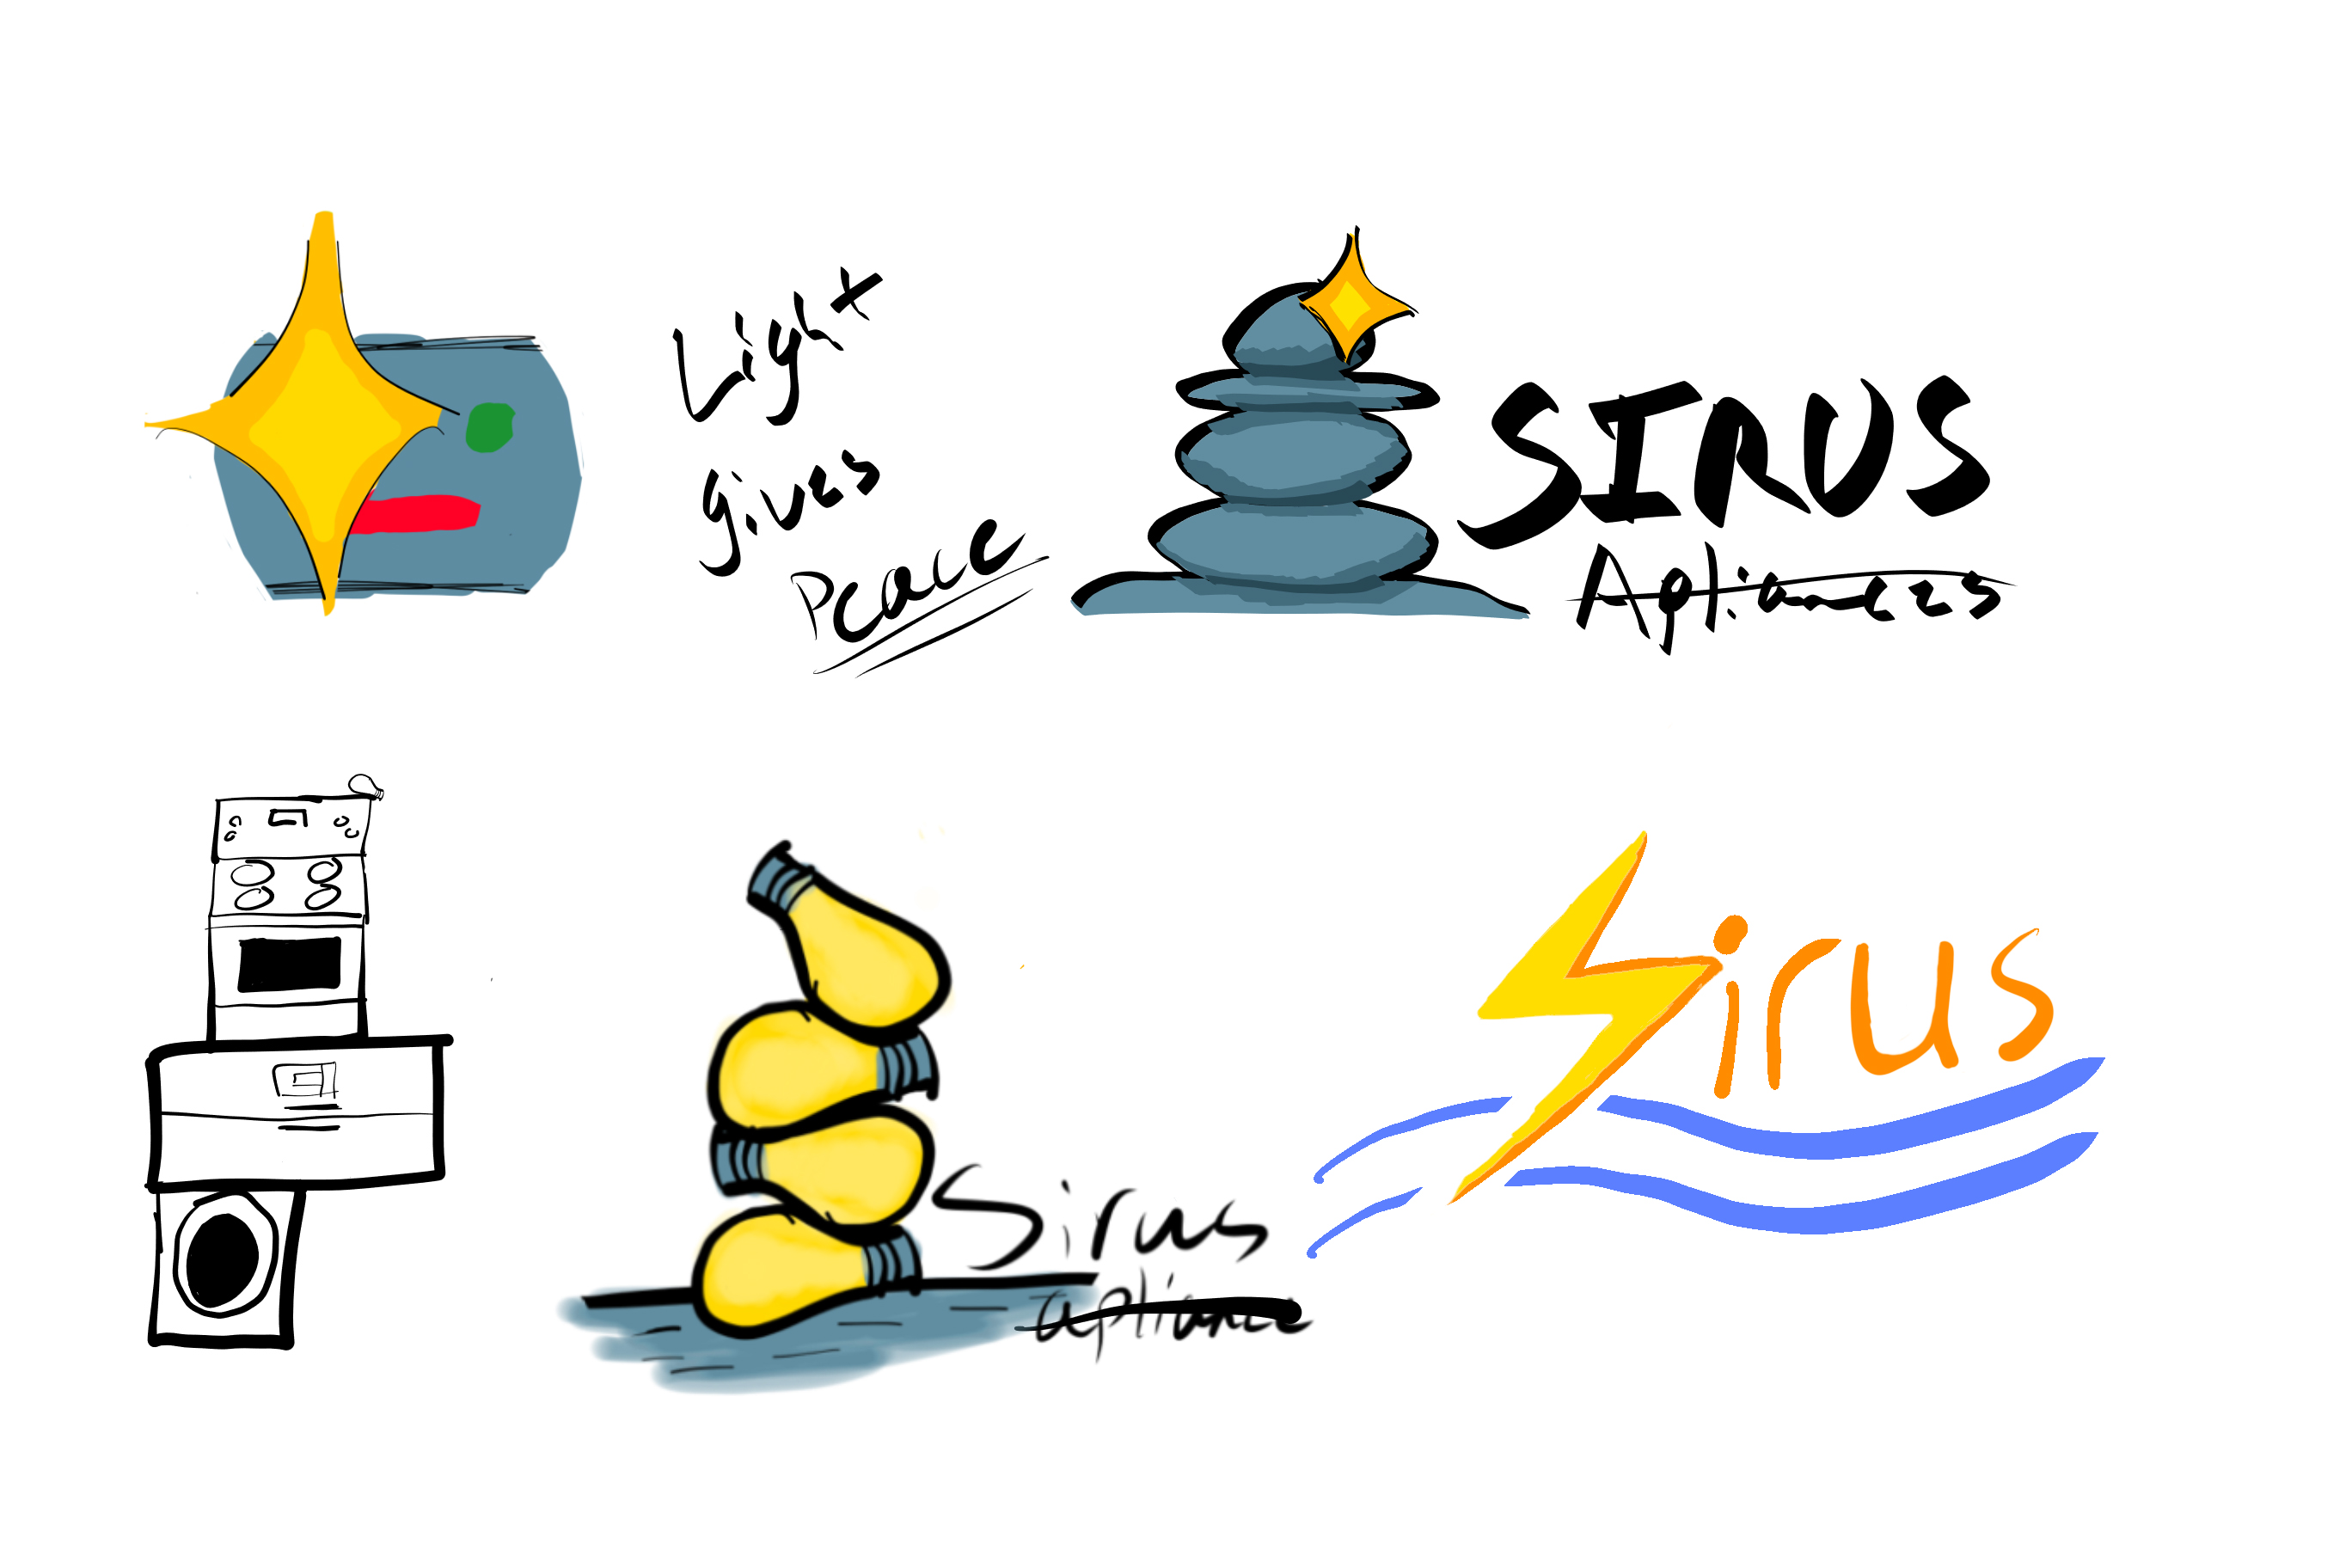 Light
gives
Peace
SIRUS
Apliances
Sirus
apliance
Sirus